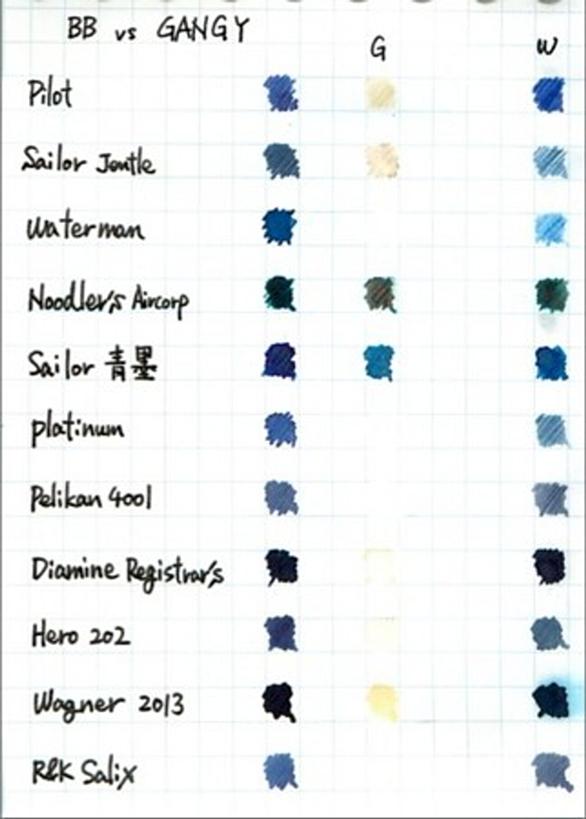 BB vs GANGY
G W
Pilot
Sailor Jentle
Waterman
Noodler's Aircorp
Sailor 青墨
platinum
Pelikan 4001
Diamine Registrar's
Hero 202
Wagner 2013
R&K Salix